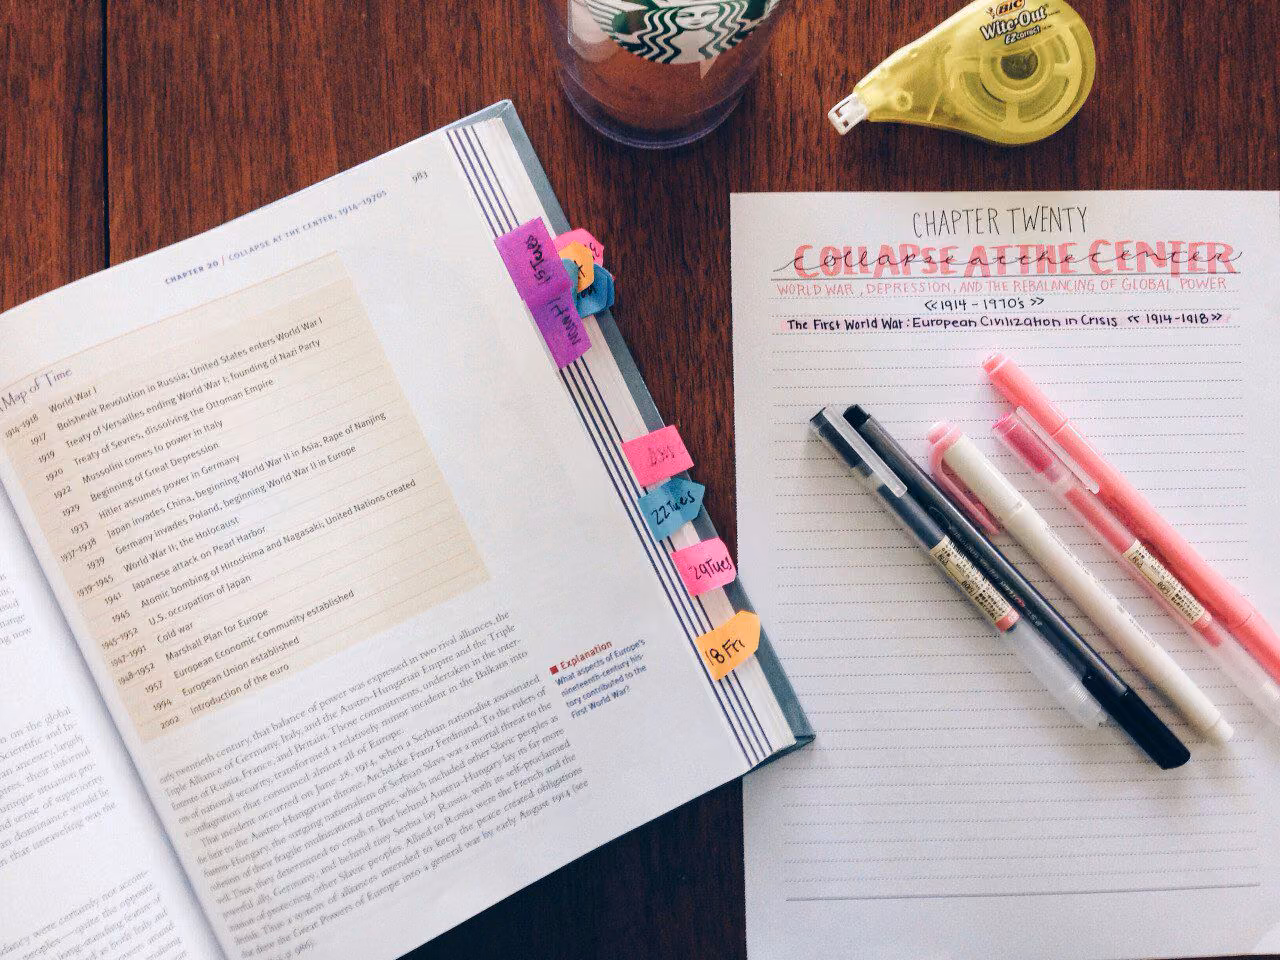 983
CHAPTER 20 / COLLAPSE AT THE CENTER, 1914–1970S
Map of Time
1914–1918 World War I
1917 Bolshevik Revolution in Russia; United States enters World War I
1919 Treaty of Versailles ending World War I; founding of Nazi Party
1920 Treaty of Sevres, dissolving the Ottoman Empire
1922 Mussolini comes to power in Italy
1929 Beginning of Great Depression
1933 Hitler assumes power in Germany
1937–1938 Japan invades China, beginning World War II in Asia; Rape of Nanjing
1939 Germany invades Poland, beginning World War II in Europe
1939–1945 World War II; the Holocaust
1941 Japanese attack on Pearl Harbor
1945 Atomic bombing of Hiroshima and Nagasaki; United Nations created
1945–1952 U.S. occupation of Japan
1947–1991 Cold war
1948–1952 Marshall Plan for Europe
1957 European Economic Community established
1994 European Union established
2002 Introduction of the euro
twentieth century, that balance of power was expressed in two rival alliances, the
Triple Alliance of Germany, Italy, and the Austro-Hungarian Empire and the Triple
Entente of Russia, France, and Britain. Those commitments, undertaken in the inter-
est of national security, transformed a relatively minor incident in the Balkans into
a conflagration that consumed almost all of Europe.
That incident occurred on June 28, 1914, when a Serbian nationalist assassinated
the heir to the Austro-Hungarian throne, Archduke Franz Ferdinand. To the rulers of
Austria-Hungary, the surging nationalism of Serbian Slavs was a mortal threat to the
cohesion of their fragile multinational empire, which included other Slavic peoples as
well. Thus, they determined to crush it. But behind Austria-Hungary lay its far more
powerful ally, Germany, and behind tiny Serbia lay Russia, with its self-proclaimed
mission of protecting other Slavic peoples. Allied to Russia were the French and the
British. Thus a system of alliances intended to keep the peace created obligations
that drew the Great Powers of Europe into a general war by early August 1914 (see
Explanation
What aspects of Europe's
nineteenth-century his-
tory contributed to the
First World War?
15 Tues
22 Tues
29 Tues
18 Fri
BIC
Wite·Out
EZ correct
CHAPTER TWENTY
COLLAPSE AT THE CENTER
collapse at the center
WORLD WAR, DEPRESSION, AND THE REBALANCING OF GLOBAL POWER
<< 1914 - 1970's >>
The First World War: European Civilization in Crisis << 1914-1918 >>